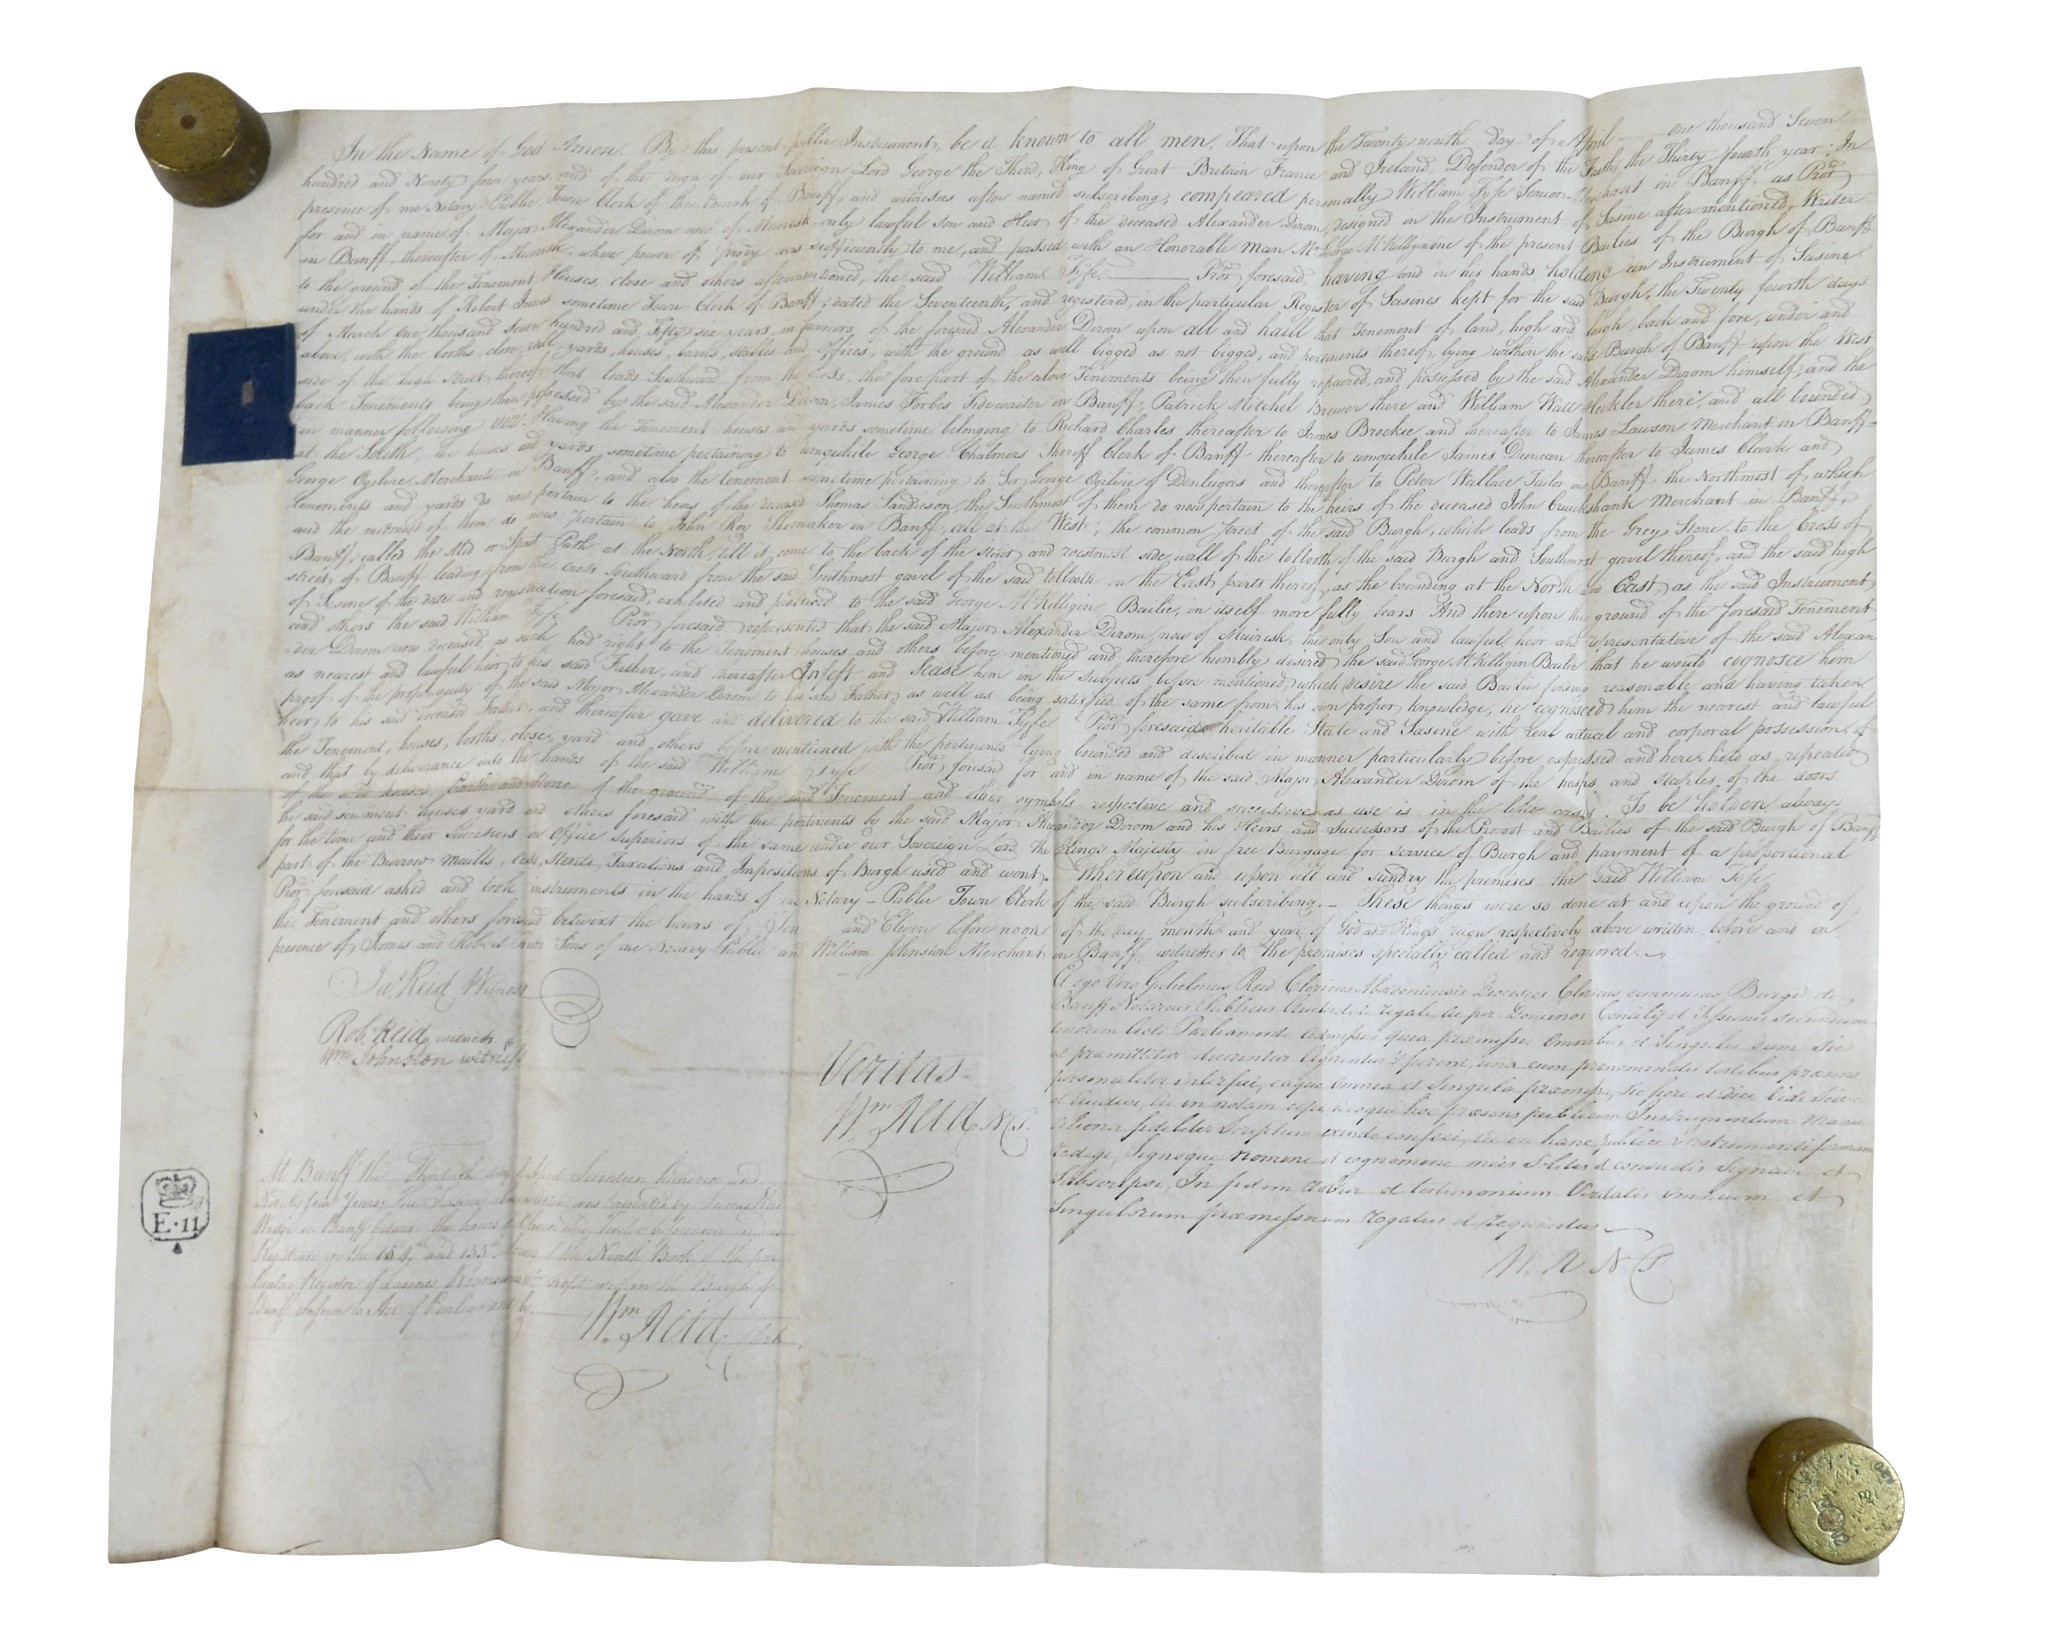 In the Name of God Amen. By this present public Instrument, be it known to all men, That upon the Twenty ninth day of April one thousand Seven
hundred and Ninety four years, and of the reign of our Sovereign Lord George the Third, King of Great Britain France and Ireland, Defender of the Faith, the Thirty fourth year; In
presence of me Notary Public, Town Clerk of the Burgh of Banff, and witnesses after named subscribing, compeared personally William Fyfe Senior Merchant in Banff, as Pror
for and in name of Major Alexander Dirom now of Muiresk only lawful son and Heir of the deceased Alexander Dirom, designed in the Instrument of Sasine after mentioned, Writer
in Banff, thereafter of Muiresk, whose power of was sufficiently to me, and passed with an Honorable Man Mr George McKilligin one of the present Bailies of the Burgh of Banff
to the ground of the Tenement, Houses, close and others aftermentioned, the said William Fyfe Pror foresaid, having and in his hands holding an Instrument of Sasine
under the hands of Robert Innes sometime Town Clerk of Banff; dated the Seventeenth, and registered, in the particular Register of Sasines kept for the said Burgh, the Twenty fourth days
of March One thousand Seven hundred and Fifty six years, in favours, of the foresaid Alexander Dirom upon all and haill that Tenement of land, high and laigh, back and fore, under and
above, with the booths, close, yards, houses, barns, stables and Offices, with the ground as well bigged as not bigged, and pertinents thereof, lying within the said Burgh of Banff upon the West
side of the high Street thereof that leads Southward from the Cross, the fore part of the above Tenements being then fully repaired, and possessed by the said Alexander Dirom himself, and the
back Tenements being then possessed by the said Alexander Dirom, James Forbes Tidewaiter in Banff, Patrick Mitchel Brewer there and William Watt Heckler there, and all bounded
in manner following vizt Having the Tenement houses and yards sometime belonging to Richard Charles thereafter to James Brockie and thereafter to James Lawson Merchant in Banff
at the South; the houses and yards, sometime pertaining to umquhile George Chalmers Sheriff Clerk of Banff thereafter to umquhile James Duncan thereafter to James Clark and
George Ogilvie, Merchants in Banff, and also the tenement sometime pertaining to Sir George Ogilvie of Denlugas and thereafter to Peter Wallace Tailor in Banff the Northmost of which
Tenements and yards do now pertain to the heirs of the deceased Thomas Sandieson, the Southmost of them do now pertain to the heirs of the deceased John Cruickshank Merchant in Banff,
and the midmost of them do now pertain to John Roy Shoemaker in Banff, all at the West; the common Street of the said Burgh, which leads from the Grey Stone to the Cross of
Banff, called the Mid or Path at the North, till it come to the back of the stairs and westmost side wall of the tolbooth of the said Burgh and Southmost gavel thereof, and the said high
street of Banff leading from the cross Southward from the said Southmost gavel of the said tolbooth on the East parts thereof, as the bounding at the North and East, as the said Instrument
of Sasine of the date and registration foresaid, exhibited and produced to the said George McKilligin Bailie, in itself more fully bears And there upon the ground of the foresaid Tenement,
and others the said William Fyfe Pror foresaid represented that the said Major Alexander Dirom, now of Muiresk, the only Son and lawful heir, and representative of the said Alexan
-der Dirom now deceased, as such had right to the Tenement houses and others before mentioned and therefore humbly desired, the said George McKilligin Bailie that he would cognosce him
as nearest and lawful heir to his said Father, and thereafter Infeft and Sease him in the Subjects before mentioned, which desire the said Bailie finding reasonable and having taken
proof of the propinquity of the said Major Alexander Dirom to his said Father, as well as being satisfied of the same from his own proper knowledge, he cognosced him the nearest and lawful
heir, to his said deceased Father, and thereafter gave and delivered to the said William Fyfe Pror foresaid heritable State and Sasine with real actual and corporal possession, of
the Tenement, houses, booths, close, yard and others before mentioned with the pertinents lying bounded and described in manner particularly before expressed and here held as repeated
and that by deliverance into the hands of the said William Fyfe Pror foresaid for and in name of the said Major Alexander Dirom of the hasps and staples, of the doors
of the said houses, Earth and Stone of the ground of the said Tenement and other symbols respective and successive as use is in the like cases. To be holden always
the said tenement, houses yard and others foresaid with the pertinents by the said Major Alexander Dirom and his Heirs and Successors of the Provost and Bailies of the said Burgh of Banff
for the time and their Successors in Office Superiors of the same under our Sovereign Lord the Kings Majesty in free Burgage for service of Burgh and payment of a proportional
part of the Burrow maills, cess, Stents, Taxations and Impositions of Burgh used and wont. Whereupon and upon all and sundry the premises the said William Fyfe
Pror foresaid asked and took instruments in the hands of me Notary Public Town Clerk of the said Burgh subscribing. These things were so done at and upon the ground of
the Tenement and others foresaid betwixt the hours of Ten and Eleven before noon of the day, month and year of God and Kings reign respectively above written, before and in
presence of James and Robert Sons of me Notary Public and William Johnston Merchant in Banff, witnesses to the premises specially called and required.
Jas Reid Witness
Rob. Reid witness
Wm Johnston witness
Veritas
Wm Reid N.P.
Et ego vero Gulielmus Reid Clericus Aberdonensis Diocesios Clericus communis Burgi de
Banff Notarius Publicus Auctoritate regali, ac per Dominos Concilij et Sessionis secundum
tenorem Acti Parliamenti admissus quia praemissis omnibus et Singulis dum sic
ut praemittitur dicerentur agerentur et fierent, una cum praenominatis testibus praesens
personaliter interfui, eaque omnia et Singula praemissa, sic fieri et dici vidi Scivi
et audivi, ac in notam cepi, ideoque hoc praesens publicum Instrumentum Manu
aliena fideliter Scriptum exinde confeci, ac in hanc publici instrumenti formam
redegi, Signoque Nomine et cognomine meis Solitis et consuetis Signavi et
Subscripsi, In fidem robur et testimonium Veritatis omnium et
Singulorum praemissorum rogatus et requisitus
W. R N P
At Banff the Thirtieth day of April Seventeen hundred and
Ninety four Years; The Sasine above written was presented by James Reid
Writer in Banff betwixt the hours of Eleven and Twelve forenoon and is
Registrate on the 154th and 155th of the Ninth Book of the par
-ticular Register of Sasines, Reversions &c kept within the Burgh of
Banff conform to Act of Parliament by
Wm Reid Clerk
E·11